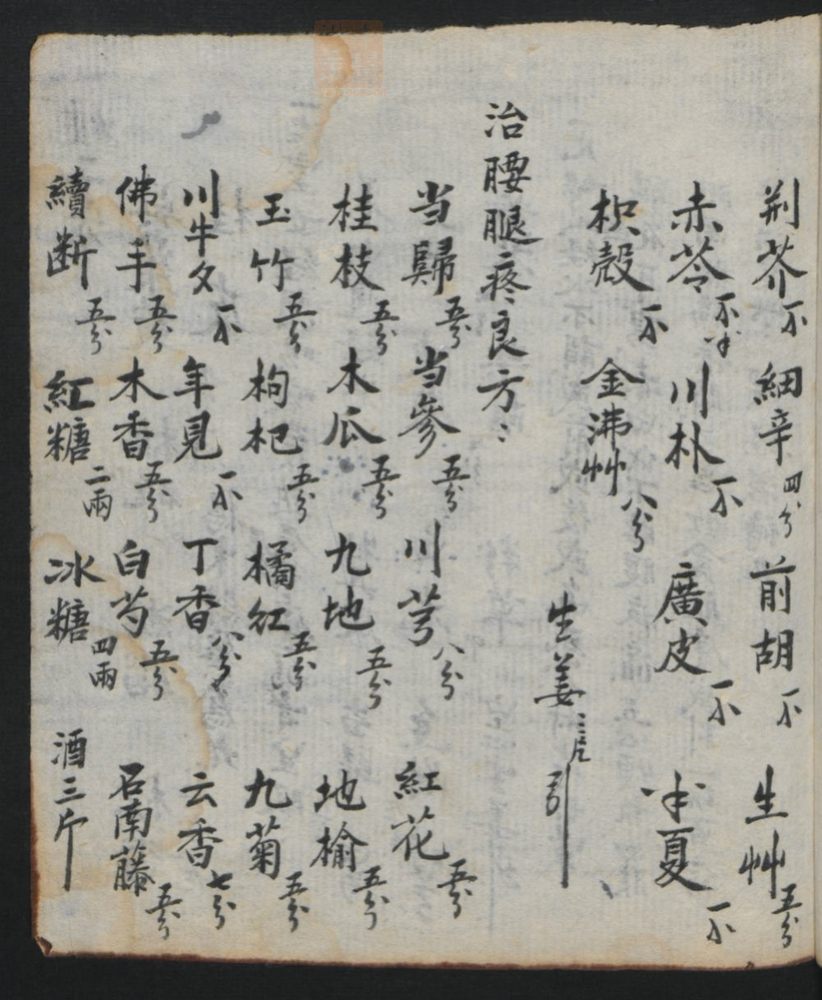 荆芥 不 細辛 四分 前胡 不 生艸 五分
赤苓 不半 川朴 不 廣皮 一不 半夏 一不
枳殼 一不 金沸艸 八分
生姜 三片 引
治腰腿疼良方：
当歸 五分 当參 五分 川芎 八分 紅花 五分
桂枝 五分 木瓜 五分 九地 五分 地榆 五分
玉竹 五分 枸杞 五分 橘紅 五分 九菊 五分
川牛夕 一不 年見 一不 丁香 八分 云香 七分
佛手 五分 木香 五分 白芍 五分 石南藤 五分
續断 五分 紅糖 二兩 冰糖 四兩 酒三斤